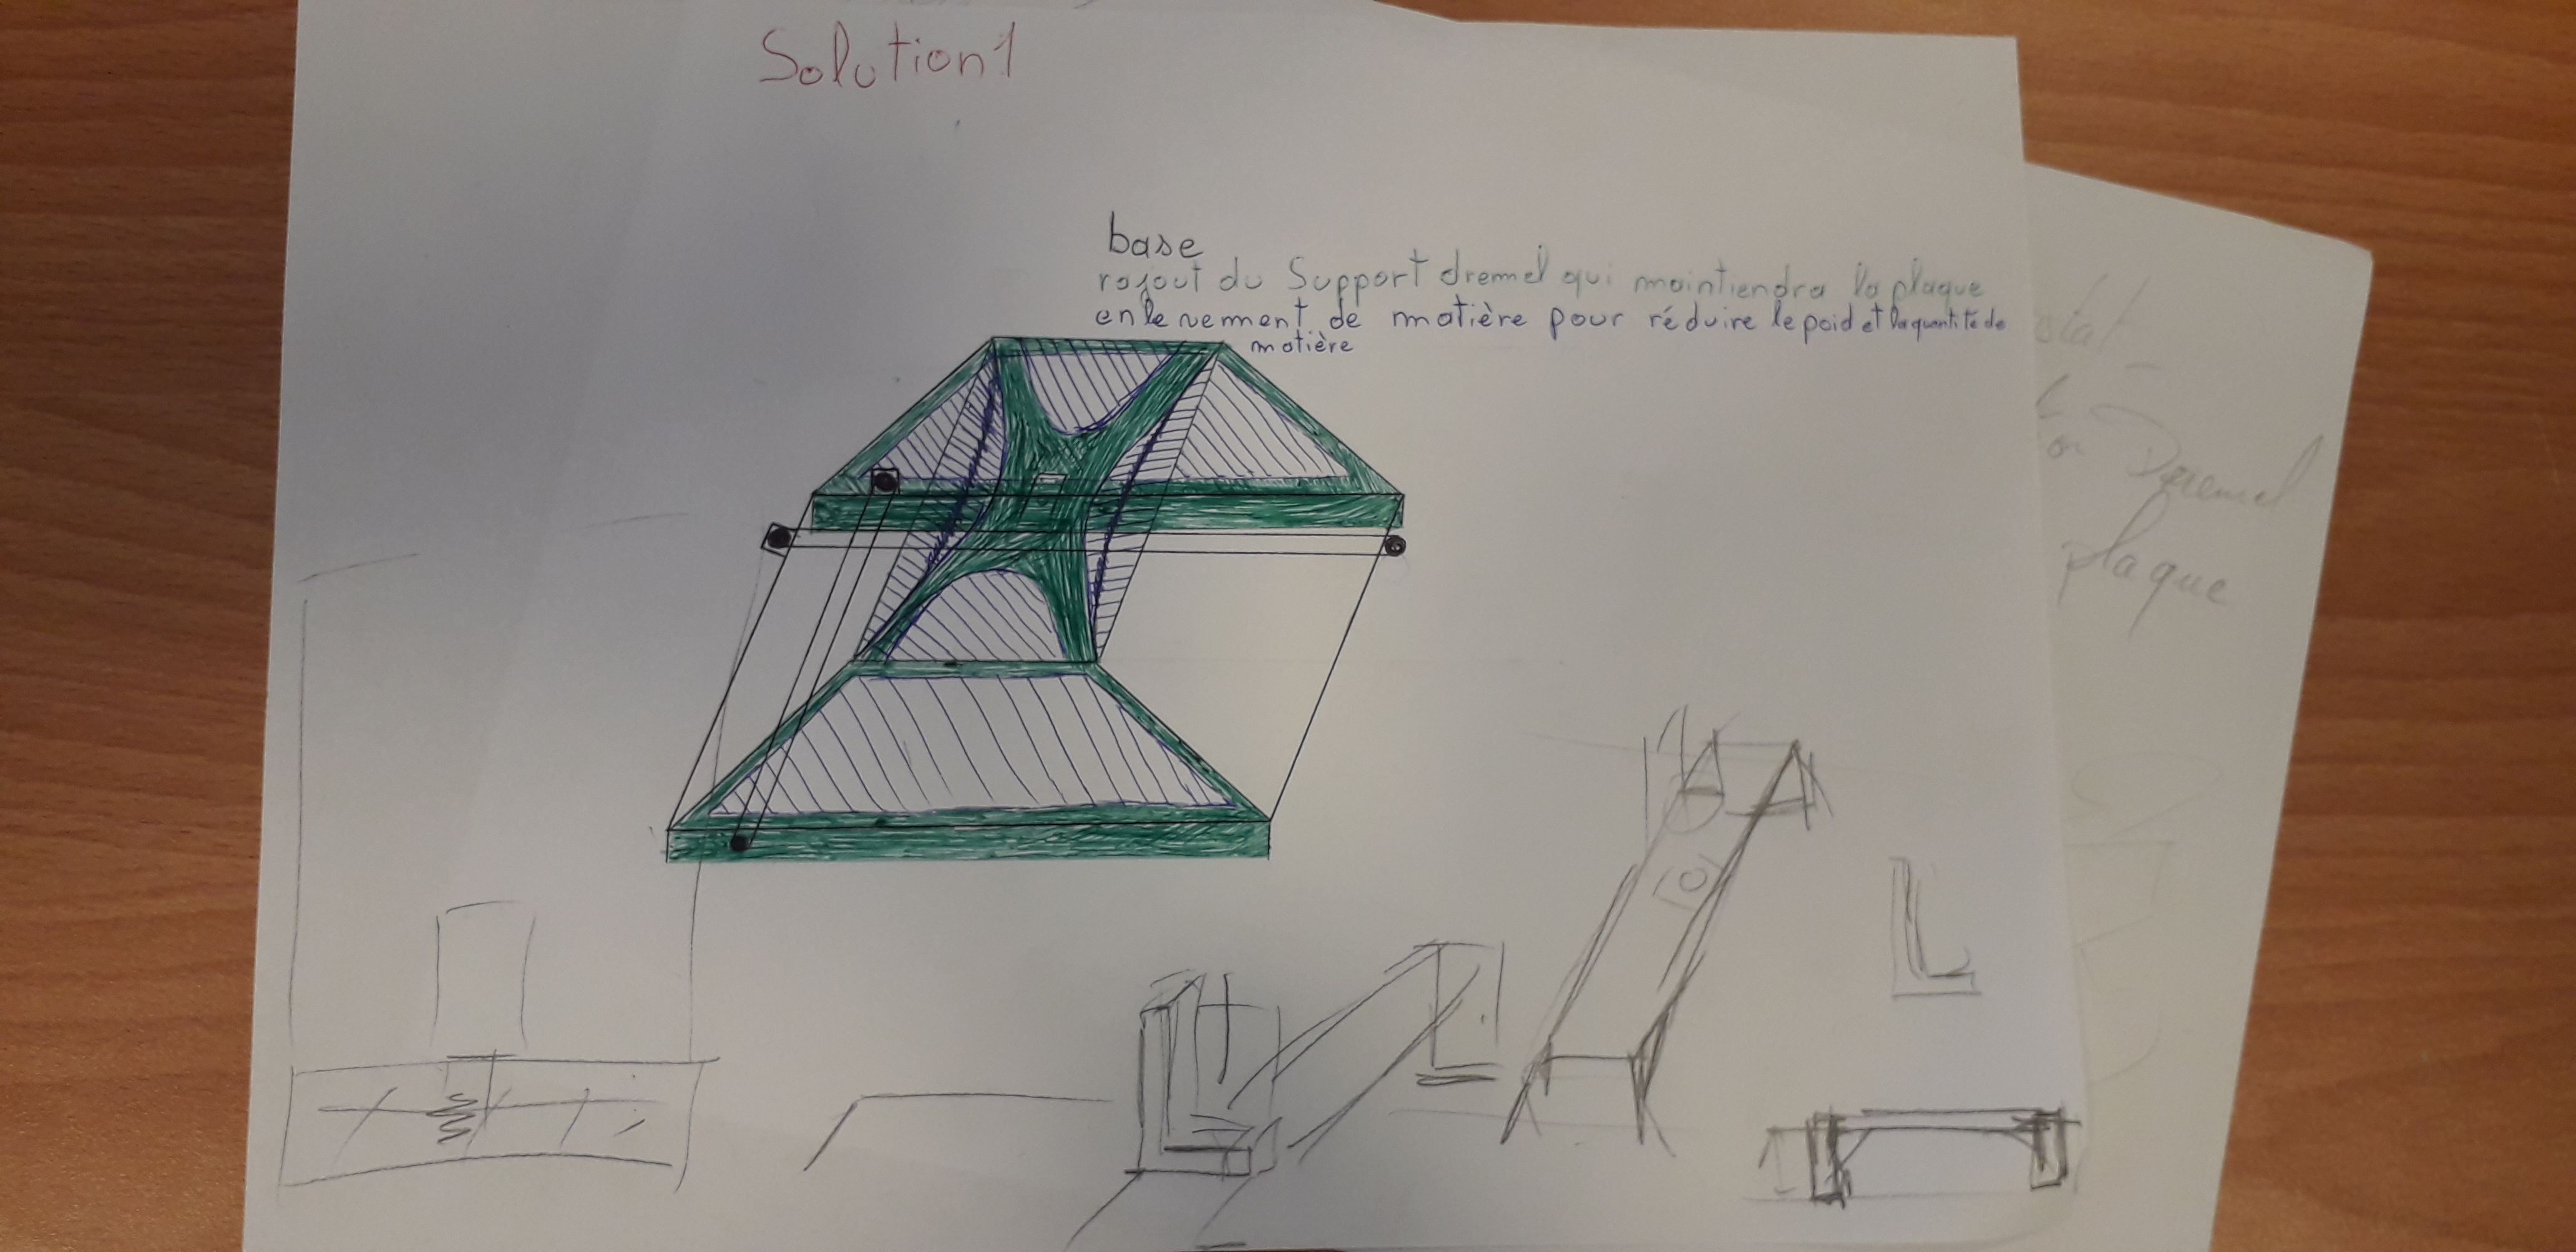 Solution 1
base
rajout du Support dremel qui maintiendra la plaque
enlevement de matière pour réduire le poid et la quantité de
matière
Dremel
plaque